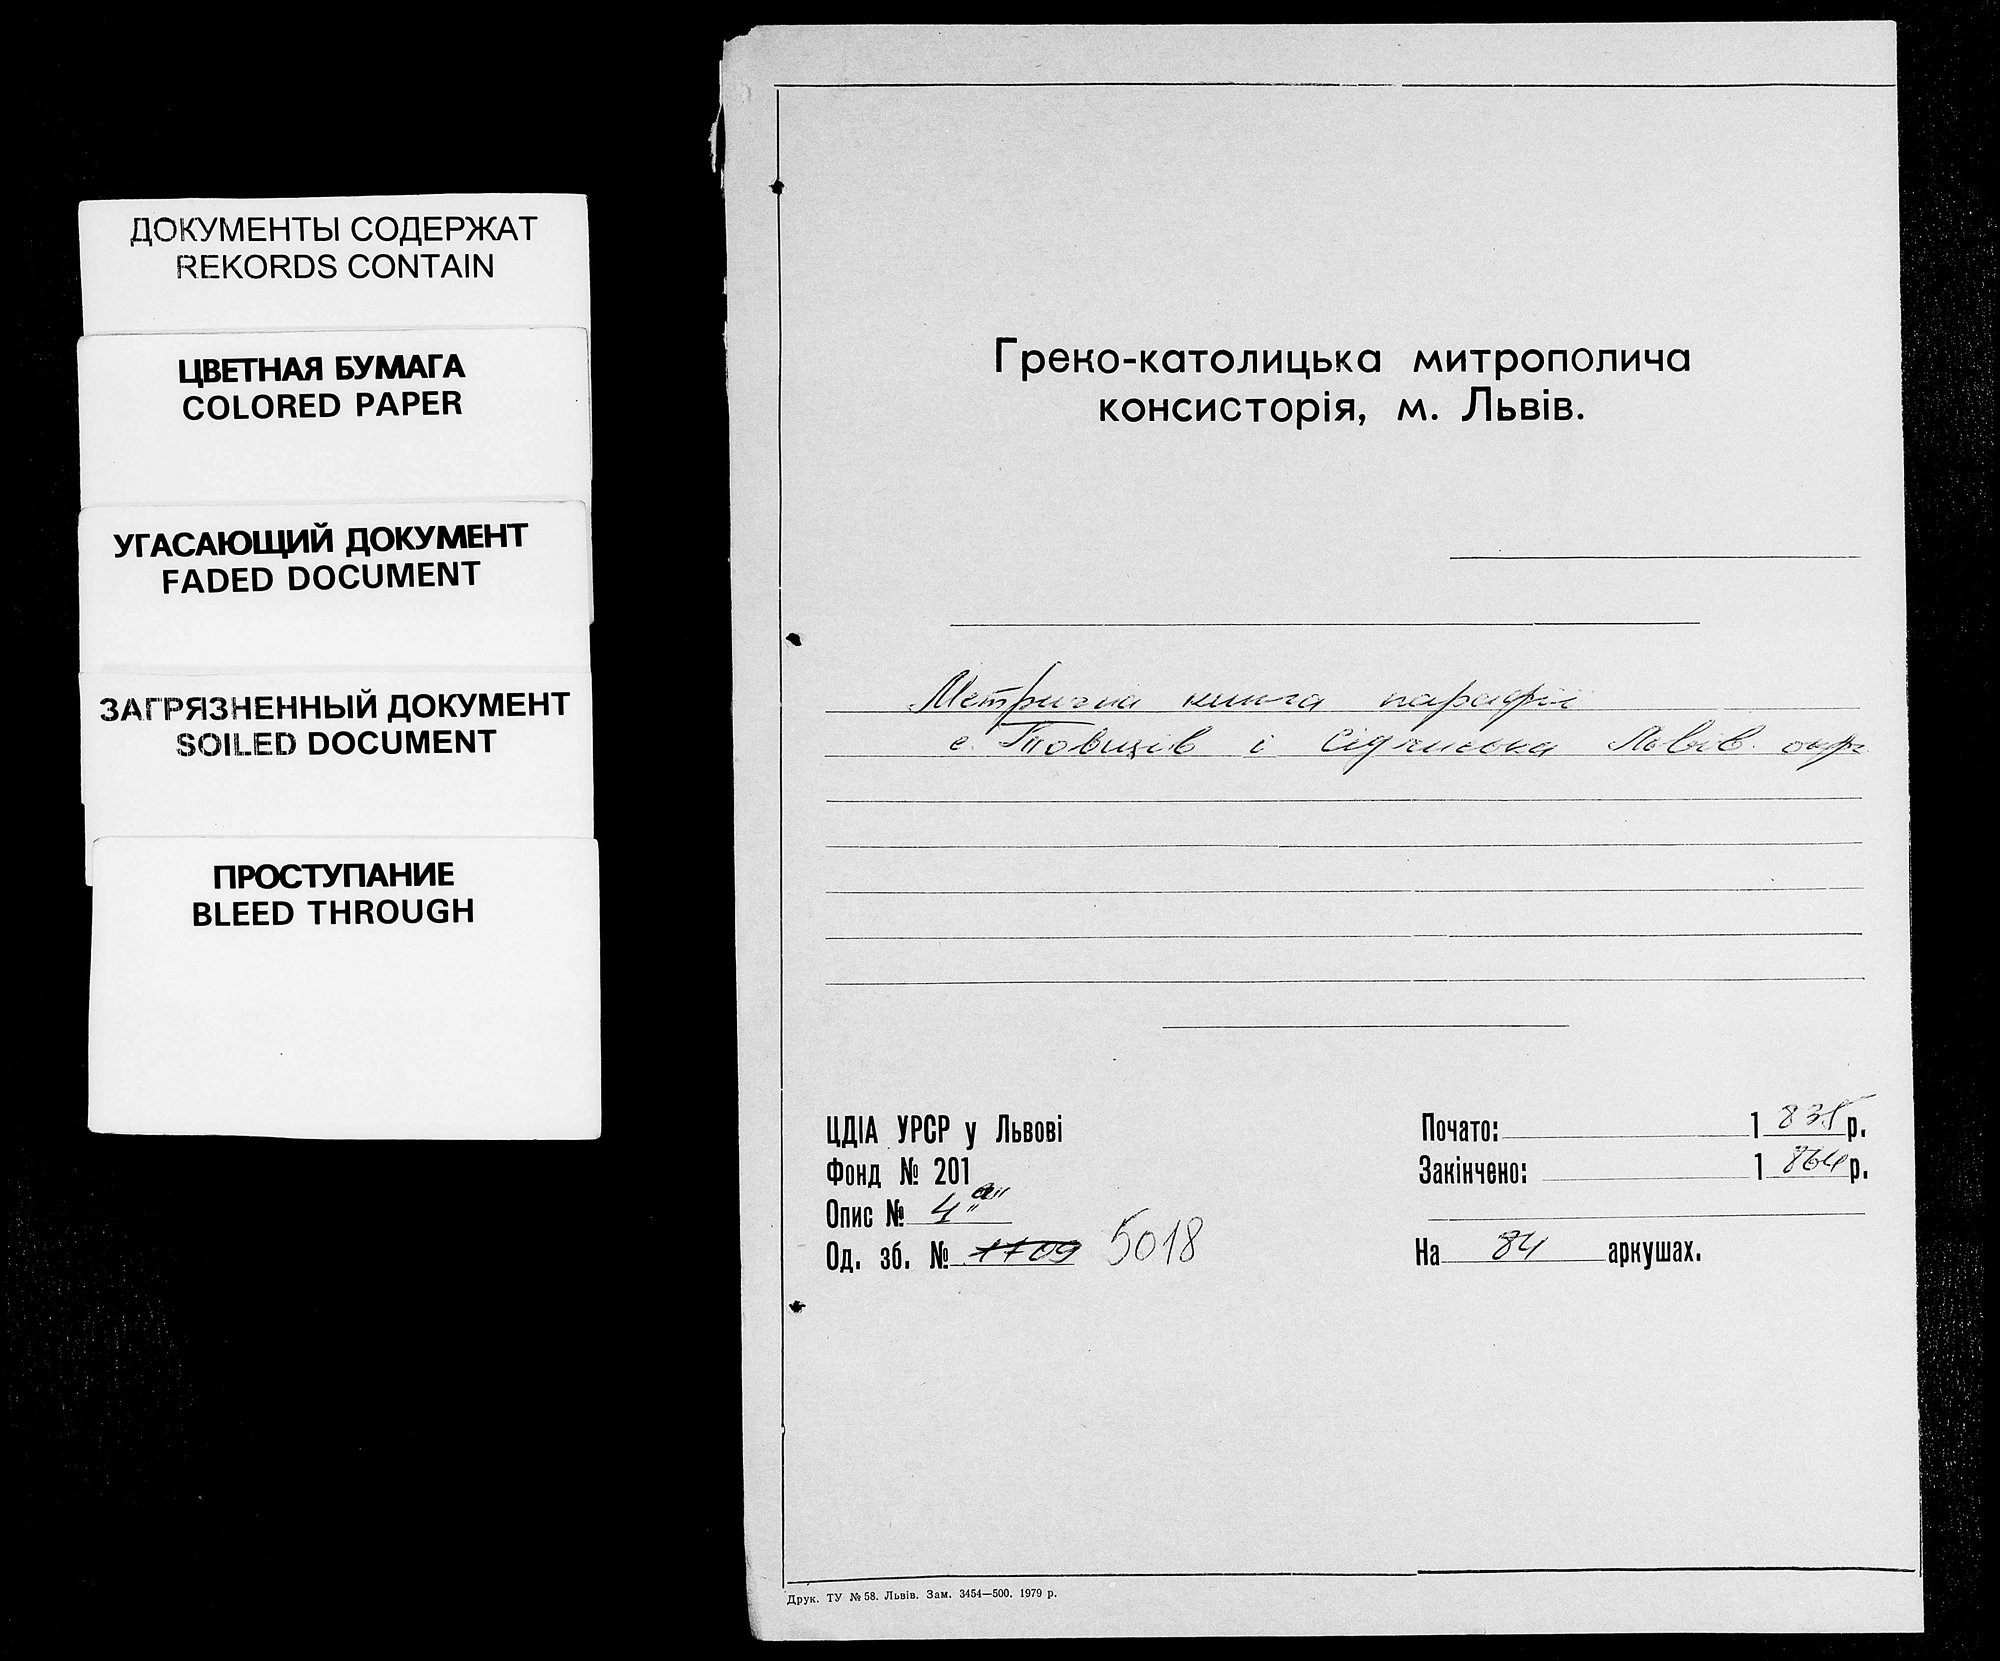 ДОКУМЕНТЫ СОДЕРЖАТ
REKORDS CONTAIN
ЦВЕТНАЯ БУМАГА
COLORED PAPER
УГАСАЮЩИЙ ДОКУМЕНТ
FADED DOCUMENT
ЗАГРЯЗНЕННЫЙ ДОКУМЕНТ
SOILED DOCUMENT
ПРОСТУПАНИЕ
BLEED THROUGH
Греко-католицька митрополича
консисторія, м. Львів.
Метрична книга парафії
с. і Львів. окр.
ЦДІА УРСР у Львові
Фонд № 201
Опис № 4 "а"
Од. зб. № 1709 5018
Почато: 1835 р.
Закінчено: 1864 р.
На 84 аркушах.
Друк. ТУ № 58. Львів. Зам. 3454—500. 1979 р.